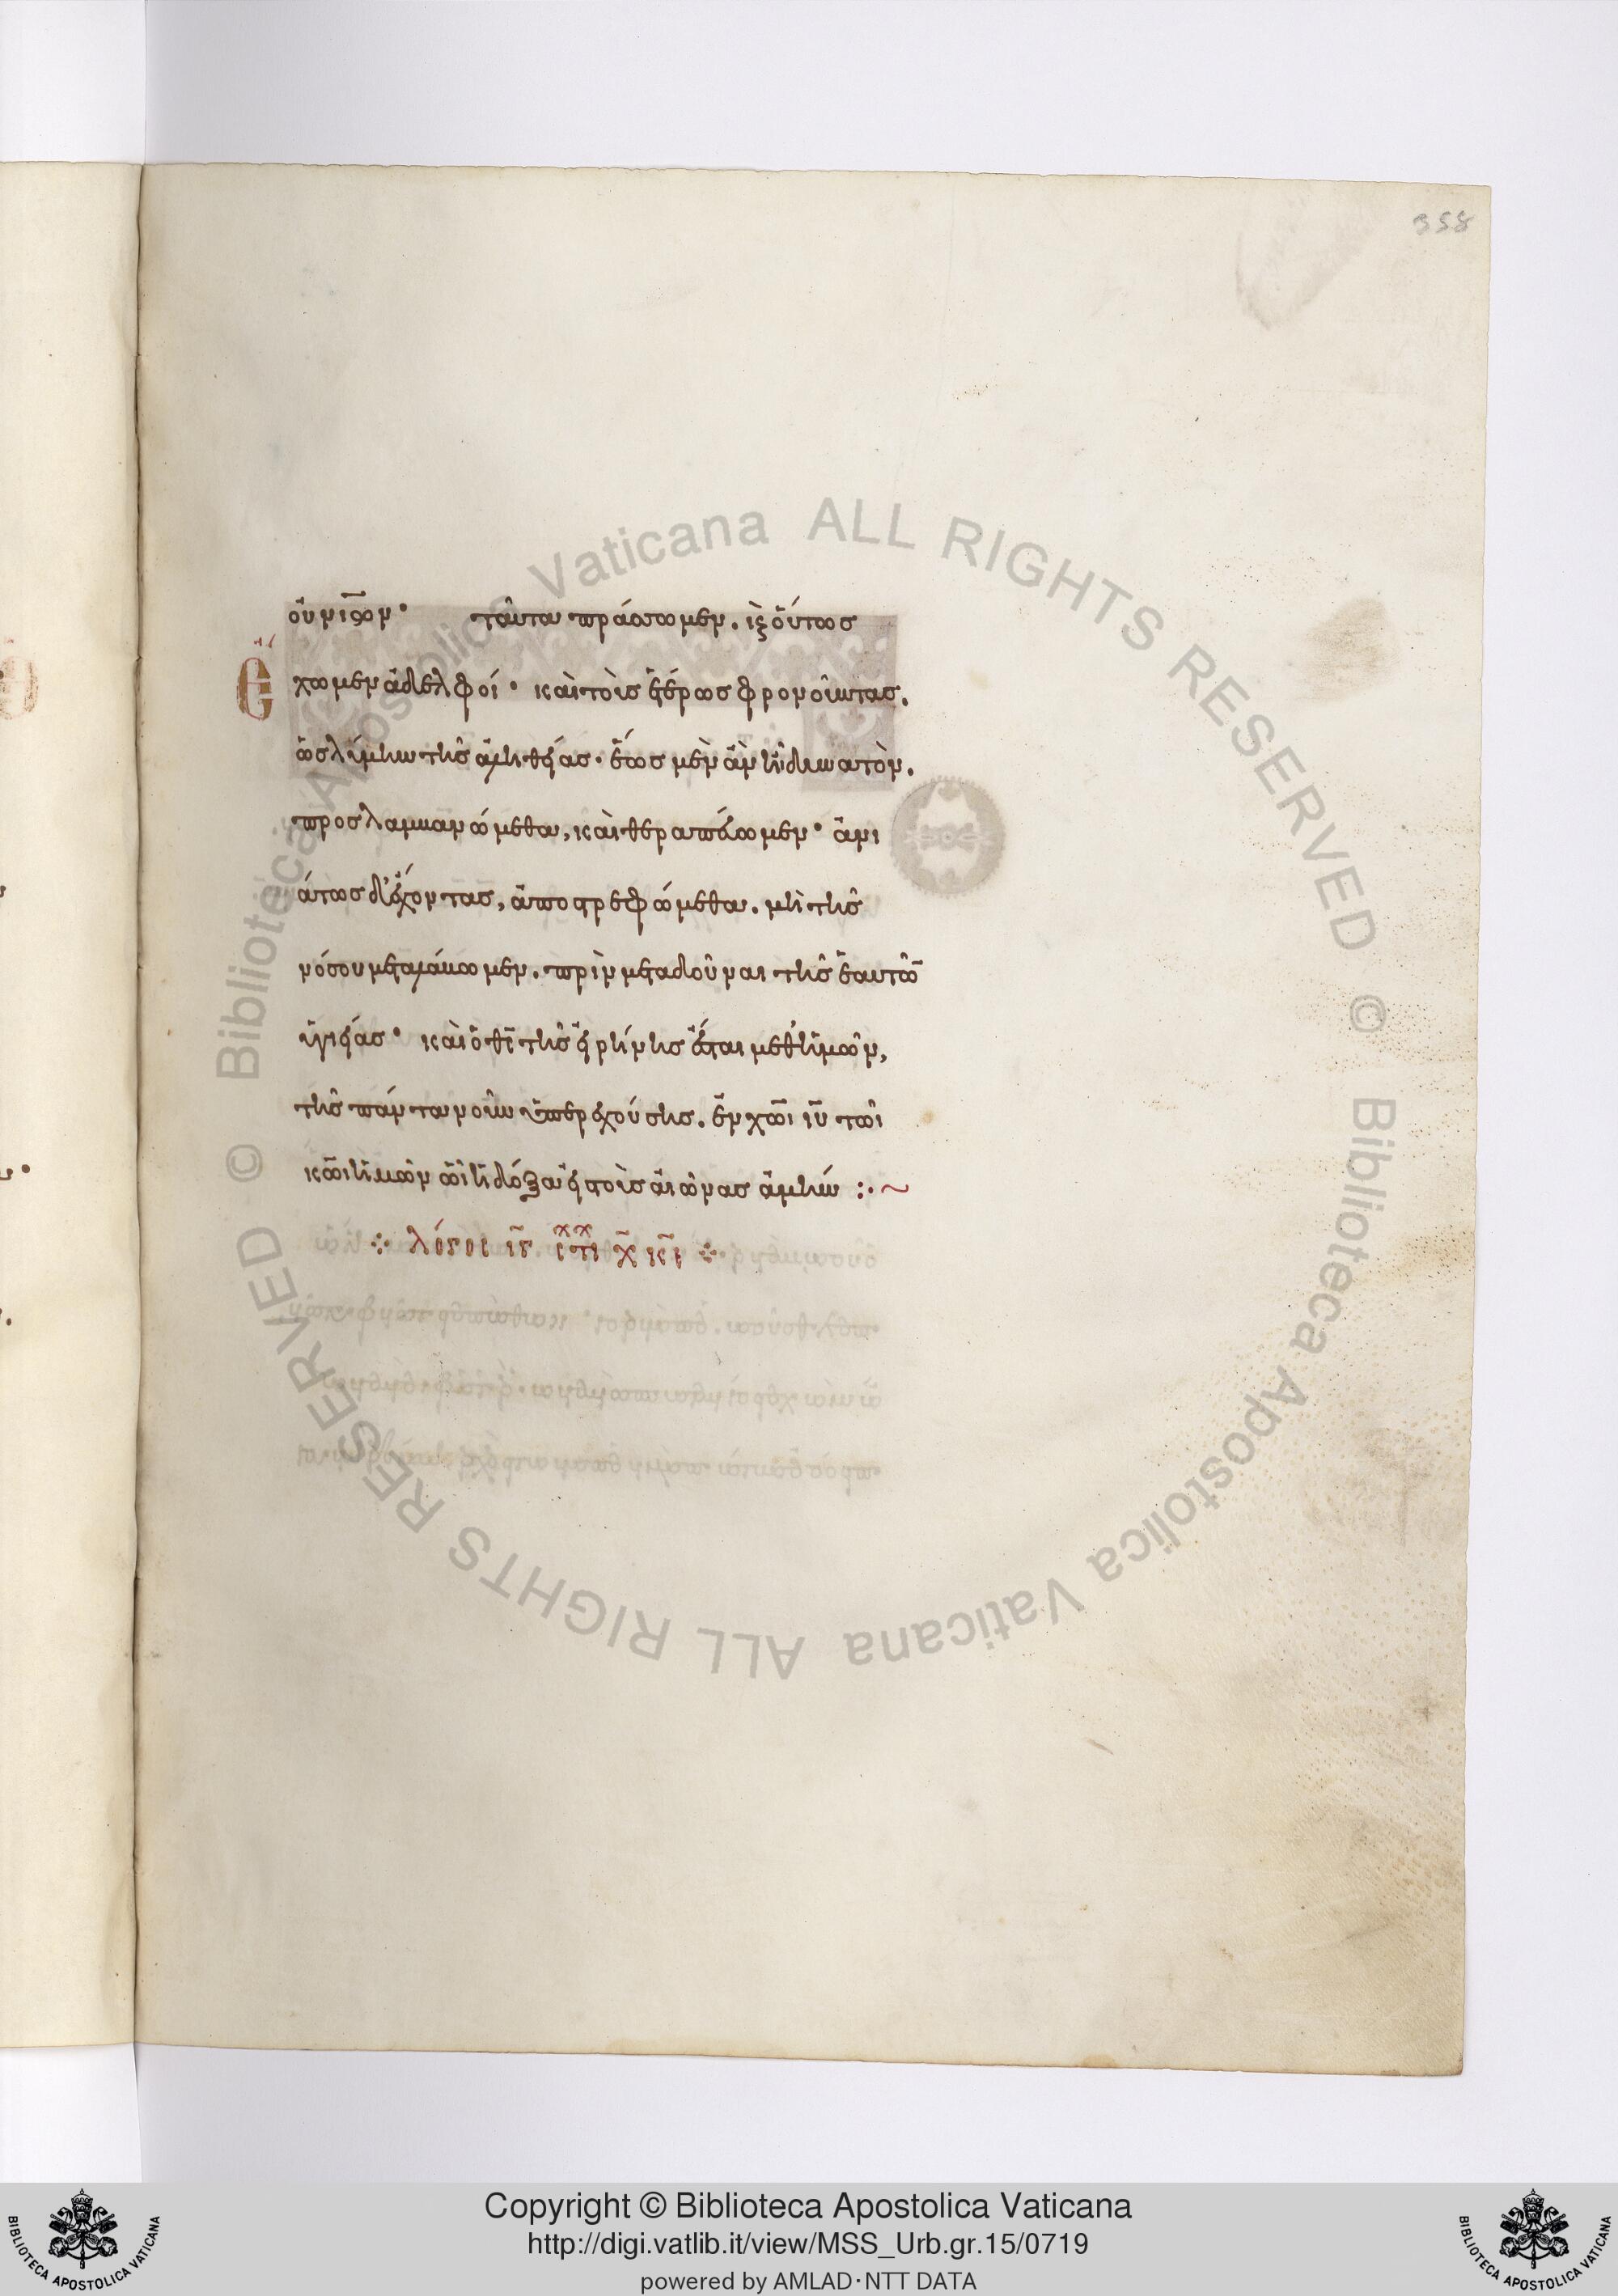 358
οὐνῖσον· ταῦτα πράσσωμεν. κ οὕτως
ἔχωμεν ἀδελφοί· καὶ τοὺς ἑτέρως φρονοῦντας.
ὡς λύμην τῆς ἀληθείας. ἕως μὲν ἂν ᾖ δυνατὸν.
προσλαμβανώμεθα, καὶ θεραπεύωμεν· ἀνι
άτως δ' ἔχοντας, ἀποστρεφώμεθα. μὴ τῆς
νόσου μεταλάβωμεν. πρὶν μεταδοῦναι τῆς ἑαυτῶ
ὑγιείας· καὶ ὁ θς τῆς εἰρήνης ἔσται μεθ' ἡμῶν,
τῆς πάντα νοῦν ὑπερεχούσης. ἐν χωι ιυ τῶι
κωι ἡμῶν ὧι ἡ δόξα εἰς τοὺς αἰῶνας ἀμήν :·~
λόγος ιγ
Copyright © Biblioteca Apostolica Vaticana
http://digi.vatlib.it/view/MSS_Urb.gr.15/0719
powered by AMLAD·NTT DATA
BIBLIOTECA APOSTOLICA VATICANA
BIBLIOTECA APOSTOLICA VATICANA
© Biblioteca Apostolica Vaticana ALL RIGHTS RESERVED
© Biblioteca Apostolica Vaticana ALL RIGHTS RESERVED